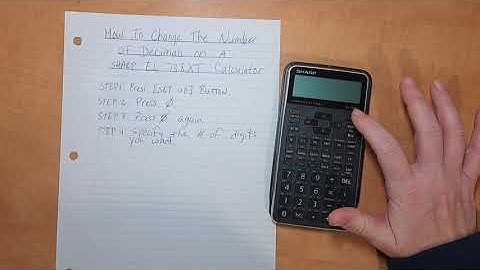 How To Change The Number
of Decimals on A
SHARP EL 738XT Calculator
STEP 1: Press [SET UP] Button
STEP 2: Press 0
STEP 3: Press 0 again
STEP 4: Specify the # of digits
you want
SHARP
DEL
7 8 9
4 5 6
1 2 3
0